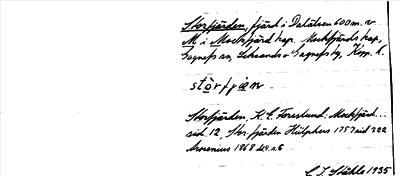 Storfjärden, fjärd i Dalälven 600 m. v.
M. i Mockfjärd kap. Mockfjärds kap,
Gagnefs sn, Leksands o Gagnefs tg, Kopp. l.
störfjon
Storfjärden, K. E. Forslund: Mockfjärd...
sid. 12, Stor-fjärden Hülphers 1757 sid 222
Arosenius 1868
C. J. Ståhle 1935